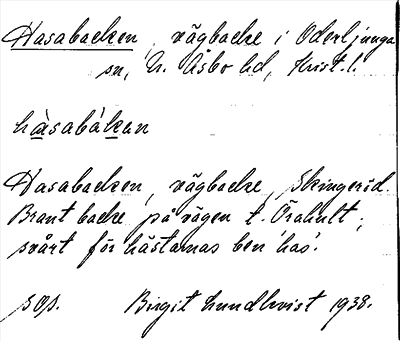 Hasabacken, vägbacke i Oderljunga
sn, N. Åsbo hd, Krist. l.
hàsabákan
Hasabacken, vägbacke, Skingeröd.
Brant backe på vägen t. Örahult;
svårt för hästarnas ben 'has'.
sOp. Birgit Lundkvist 1938.